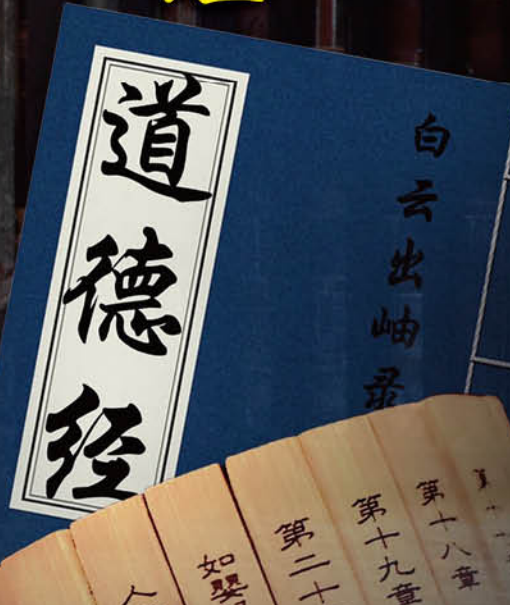 道德经
白云出岫录
第十八章
第十九章
第二十
如婴
人